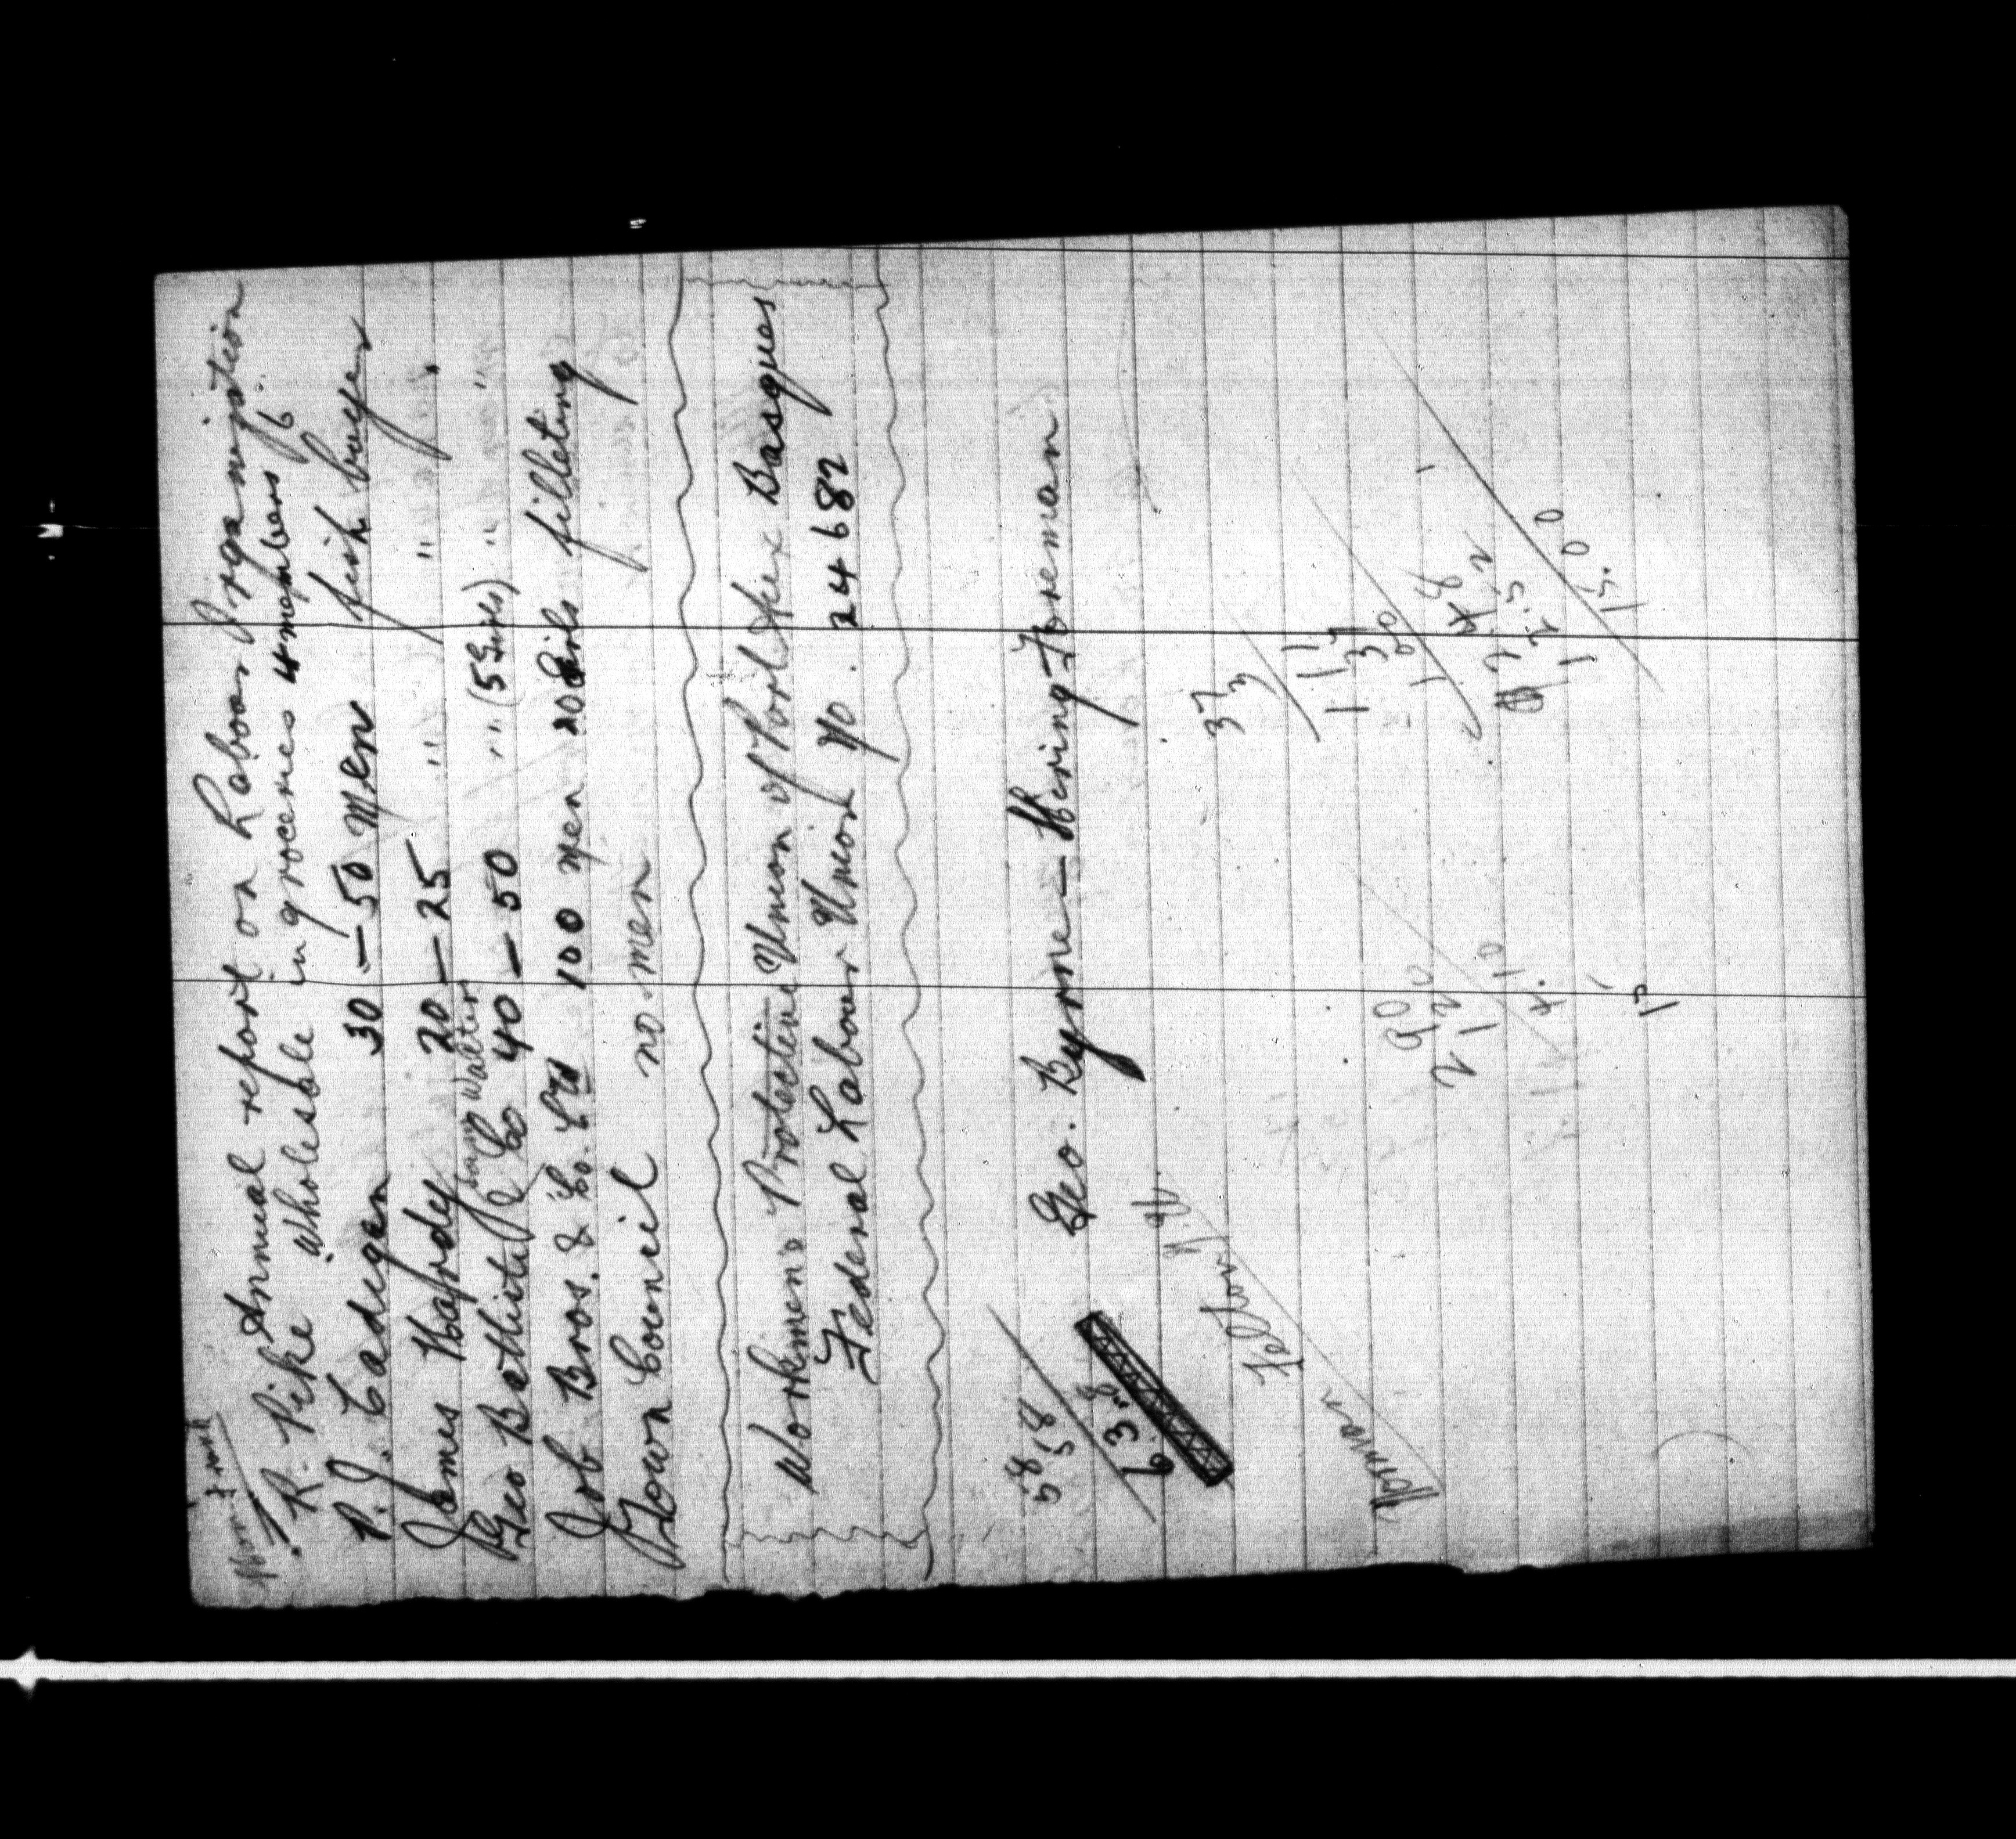 Annual report on Labour Organization
R. Pike Wholesale in groceries 4 members 6
P. J. Cadigan 30 – 50 Men fish buyer
James Hardy 20 – 25 " " "
Sam Walters
Geo Battiste & Co 40 – 50 " " (5 Girls) " "
Job Bros. & Co. Ltd 100 men 20 Girls filleting
Town Council no men
Workmens Protective Union of Port Aux Basques
Federal Labour Union No. 24682
Geo. Byrne – Hering Foreman
58
58
638
Felton
Norman
37
3
111
37
148
15.00
90
2
4.10